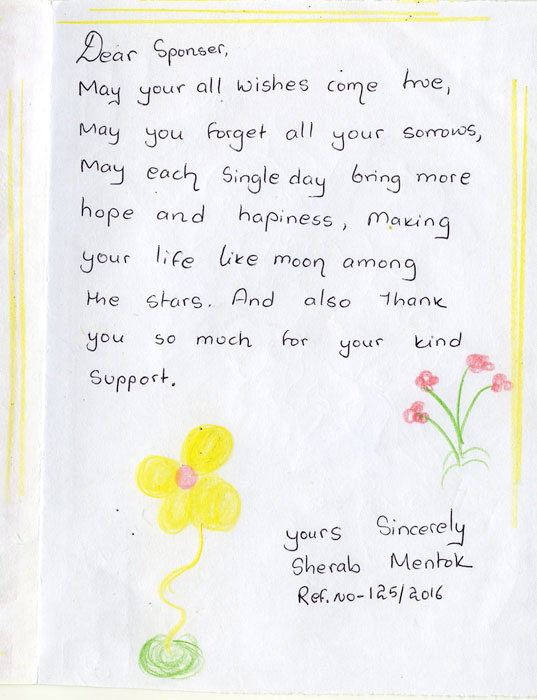 Dear Sponser,
May your all wishes come true,
May you forget all your sorrows,
May each single day bring more
hope and hapiness, making
your life like moon among
the stars. And also thank
you so much for your kind
support.
yours Sincerely
Sherab Mentok
Ref.no-125/2016